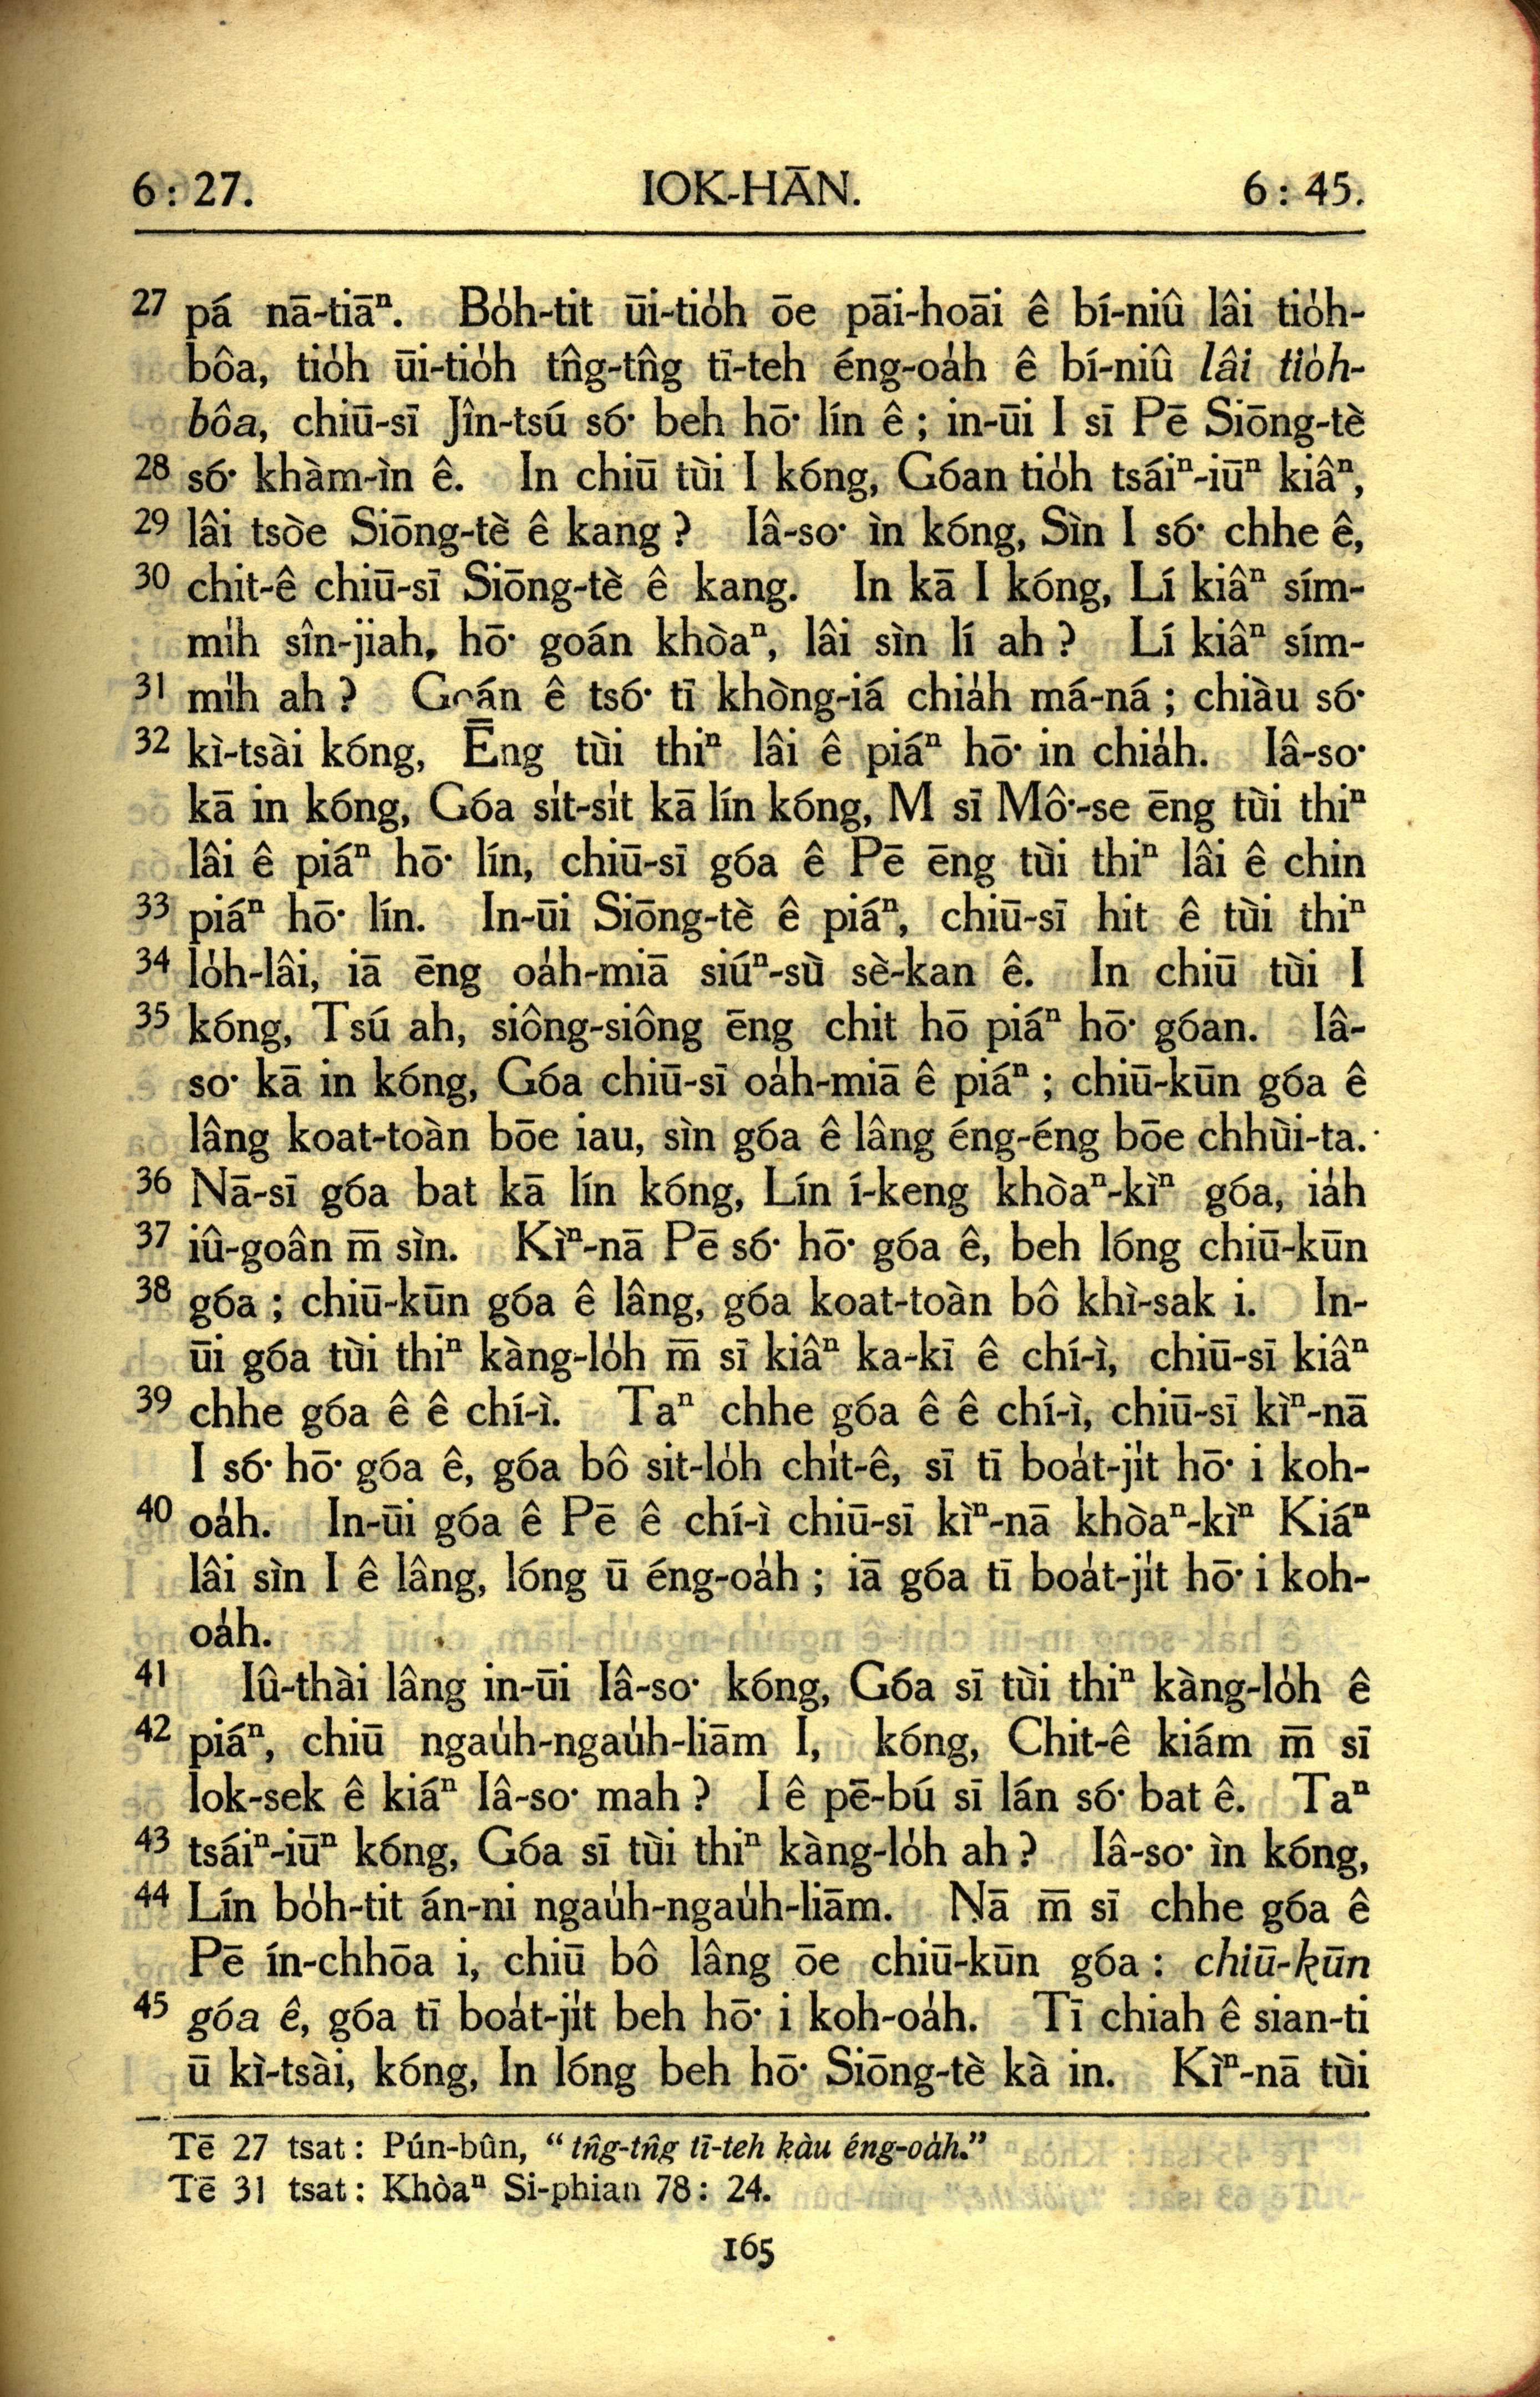 6 : 27. IOK-HĀN. 6 : 45.
27 pá nā-tiāⁿ. Bo̍h-tit ūi-tio̍h ōe pāi-hoāi ê bí-niû lâi tio̍h-
bôa, tio̍h ūi-tio̍h tn̂g-tn̂g tī-teh éng-oa̍h ê bí-niû lâi tio̍h-
bôa, chiū-sī Jîn-tsú só͘ beh hō͘ lín ê ; in-ūi I sī Pē Siōng-tè
28 só͘ khàm-ìn ê. In chiū tùi I kóng, Góan tio̍h tsáiⁿ-iūⁿ kiâⁿ,
29 lâi tsòe Siōng-tè ê kang ? Iâ-so͘ ìn kóng, Sìn I só͘ chhe ê,
30 chit-ê chiū-sī Siōng-tè ê kang. In kā I kóng, Lí kiâⁿ sím-
mi̍h sîn-jiah, hō͘ goán khòaⁿ, lâi sìn lí ah ? Lí kiâⁿ sím-
31 mi̍h ah ? Goán ê tsó͘ tī khòng-iá chia̍h má-ná ; chiàu só͘
32 kì-tsài kóng, Ēng tùi thiⁿ lâi ê piáⁿ hō͘ in chia̍h. Iâ-so͘
kā in kóng, Góa si̍t-si̍t kā lín kóng, M sī Mô͘-se ēng tùi thiⁿ
lâi ê piáⁿ hō͘ lín, chiū-sī góa ê Pē ēng tùi thiⁿ lâi ê chin
33 piáⁿ hō͘ lín. In-ūi Siōng-tè ê piáⁿ, chiū-sī hit ê tùi thiⁿ
34 lo̍h-lâi, iā ēng oa̍h-miā siúⁿ-sù sè-kan ê. In chiū tùi I
35 kóng, Tsú ah, siông-siông ēng chit hō piáⁿ hō͘ góan. Iâ-
so͘ kā in kóng, Góa chiū-sī oa̍h-miā ê piáⁿ ; chiū-kūn góa ê
lâng koat-toàn bōe iau, sìn góa ê lâng éng-éng bōe chhùi-ta.
36 Nā-sī góa bat kā lín kóng, Lín í-keng khòaⁿ-kìⁿ góa, ia̍h
37 iû-goân m̄ sìn. Kìⁿ-nā Pē só͘ hō͘ góa ê, beh lóng chiū-kūn
38 góa ; chiū-kūn góa ê lâng, góa koat-toàn bô khì-sak i. In-
ūi góa tùi thiⁿ kàng-lo̍h m̄ sī kiâⁿ ka-kī ê chí-ì, chiū-sī kiâⁿ
39 chhe góa ê ê chí-ì. Taⁿ chhe góa ê ê chí-ì, chiū-sī kìⁿ-nā
I só͘ hō͘ góa ê, góa bô sit-lo̍h chi̍t-ê, sī tī boa̍t-ji̍t hō͘ i koh-
40 oa̍h. In-ūi góa ê Pē ê chí-ì chiū-sī kìⁿ-nā khòaⁿ-kìⁿ Kiáⁿ
lâi sìn I ê lâng, lóng ū éng-oa̍h ; iā góa tī boa̍t-ji̍t hō͘ i koh-
oa̍h.
41 Iû-thài lâng in-ūi Iâ-so͘ kóng, Góa sī tùi thiⁿ kàng-lo̍h ê
42 piáⁿ, chiū ngau̍h-ngau̍h-liām I, kóng, Chit-ê kiám m̄ sī
lok-sek ê kiáⁿ Iâ-so͘ mah ? I ê pē-bú sī lán só͘ bat ê. Taⁿ
43 tsáiⁿ-iūⁿ kóng, Góa sī tùi thiⁿ kàng-lo̍h ah ? Iâ-so͘ ìn kóng,
44 Lín bo̍h-tit án-ni ngau̍h-ngau̍h-liām. Nā m̄ sī chhe góa ê
Pē ín-chhōa i, chiū bô lâng ōe chiū-kūn góa : chiū-kūn
45 góa ê, góa tī boa̍t-ji̍t beh hō͘ i koh-oa̍h. Tī chiah ê sian-ti
ū kì-tsài, kóng, In lóng beh hō͘ Siōng-tè kà in. Kìⁿ-nā tùi
Tē 27 tsat : Pún-bûn, “ tn̂g-tn̂g tī-teh kàu éng-oa̍h.”
Tē 31 tsat : Khòaⁿ Si-phian 78 : 24.
165